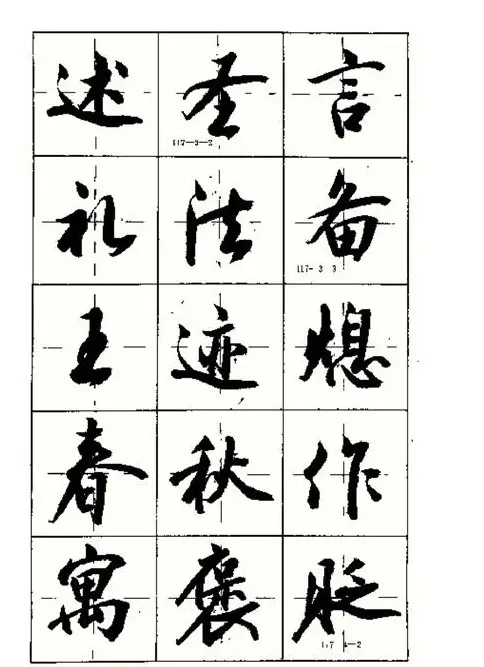 述圣言
117-3-2
礼法备
117-3 3
王迹熄
春秋作
寓褒贬